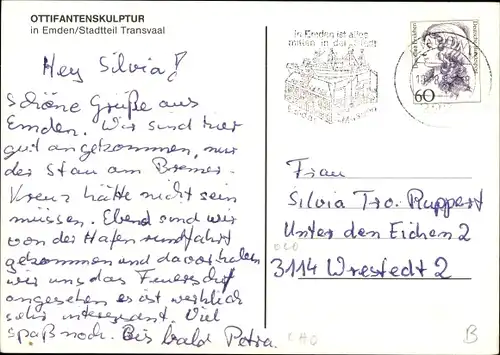 OTTIFANTENSKULPTUR
in Emden/Stadtteil Transvaal
Hey Silvia!
Schöne Grüße aus
Emden. Wir sind hier
gut angekommen, nur
der Stau am Bremer-
Kreuz hätte nicht sein
müssen. Ebend sind wir
von der Hafenrundfahrt
gekommen und davor haben
wir uns das Feuerschif
angesehen es ist wirklich
sehr interessant. Viel
spaß noch. Bis bald Petra.
In Emden ist alles
mitten in der Stadt
60
Frau
Silvia Tro. Ruppert
Unter den Eichen 2
3114 Wrestedt 2
B